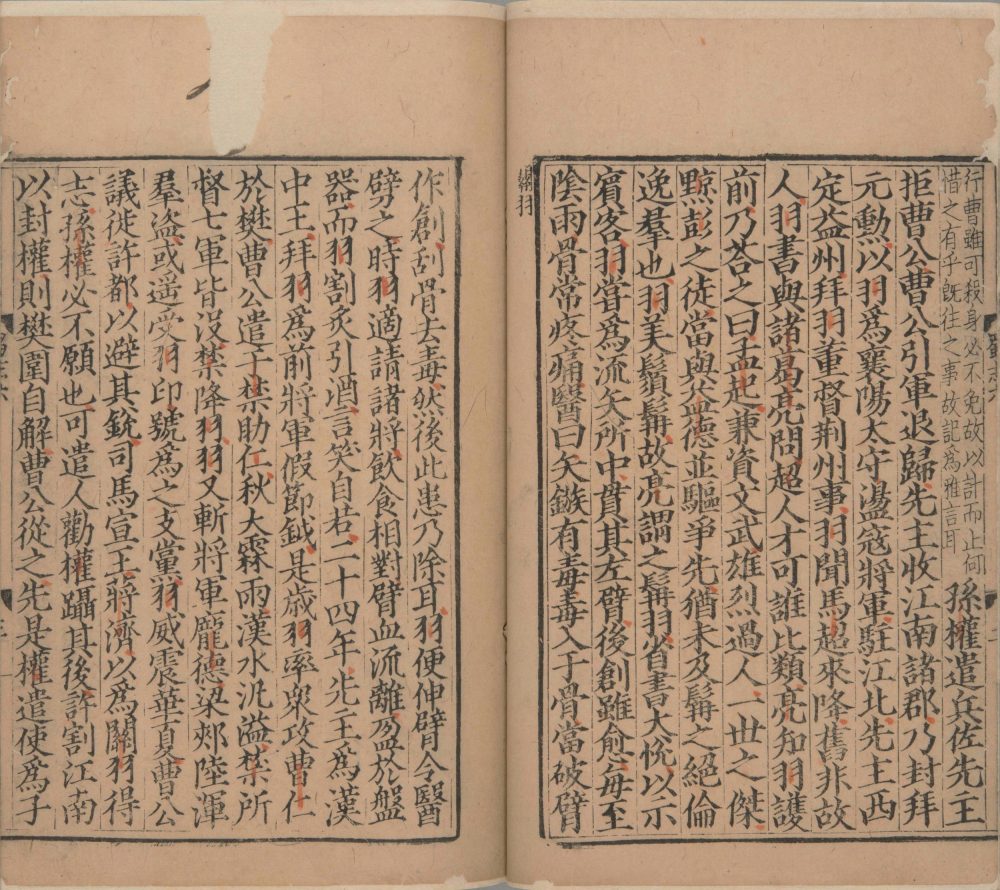 行曹雖可殺身必不免故以計而止何
惜之有乎旣往之事故記爲雅言耳
孫權遣兵佐先主
拒曹公曹公引軍退歸先主收江南諸郡乃封拜
元勳以羽爲襄陽太守盪寇將軍駐江北先主西
定益州拜羽董督荆州事羽聞馬超來降舊非故
人羽書與諸葛亮問超人才可誰比類亮知羽護
前乃荅之曰孟起兼資文武雄烈過人一世之傑
黥彭之徒當與益德並驅爭先猶未及髯之絕倫
逸羣也羽美鬚髯故亮謂之髯羽省書大悅以示
賓客羽嘗爲流矢所中貫其左臂後創雖愈每至
陰雨骨常疼痛醫曰矢鏃有毒毒入于骨當破臂
關羽
作創刮骨去毒然後此患乃除耳羽便伸臂令醫
劈之時羽適請諸將飲食相對臂血流離盈於盤
器而羽割炙引酒言笑自若二十四年先主爲漢
中王拜羽爲前將軍假節鉞是歲羽率衆攻曹仁
於樊曹公遣于禁助仁秋大霖雨漢水汎溢禁所
督七軍皆没禁降羽羽又斬將軍龐德梁郟陸渾
羣盜或遥受羽印號爲之支黨羽威震華夏曹公
議徙許都以避其銳司馬宣王蔣濟以爲關羽得
志孫權必不願也可遣人勸權躡其後許割江南
以封權則樊圍自解曹公從之先是權遣使爲子